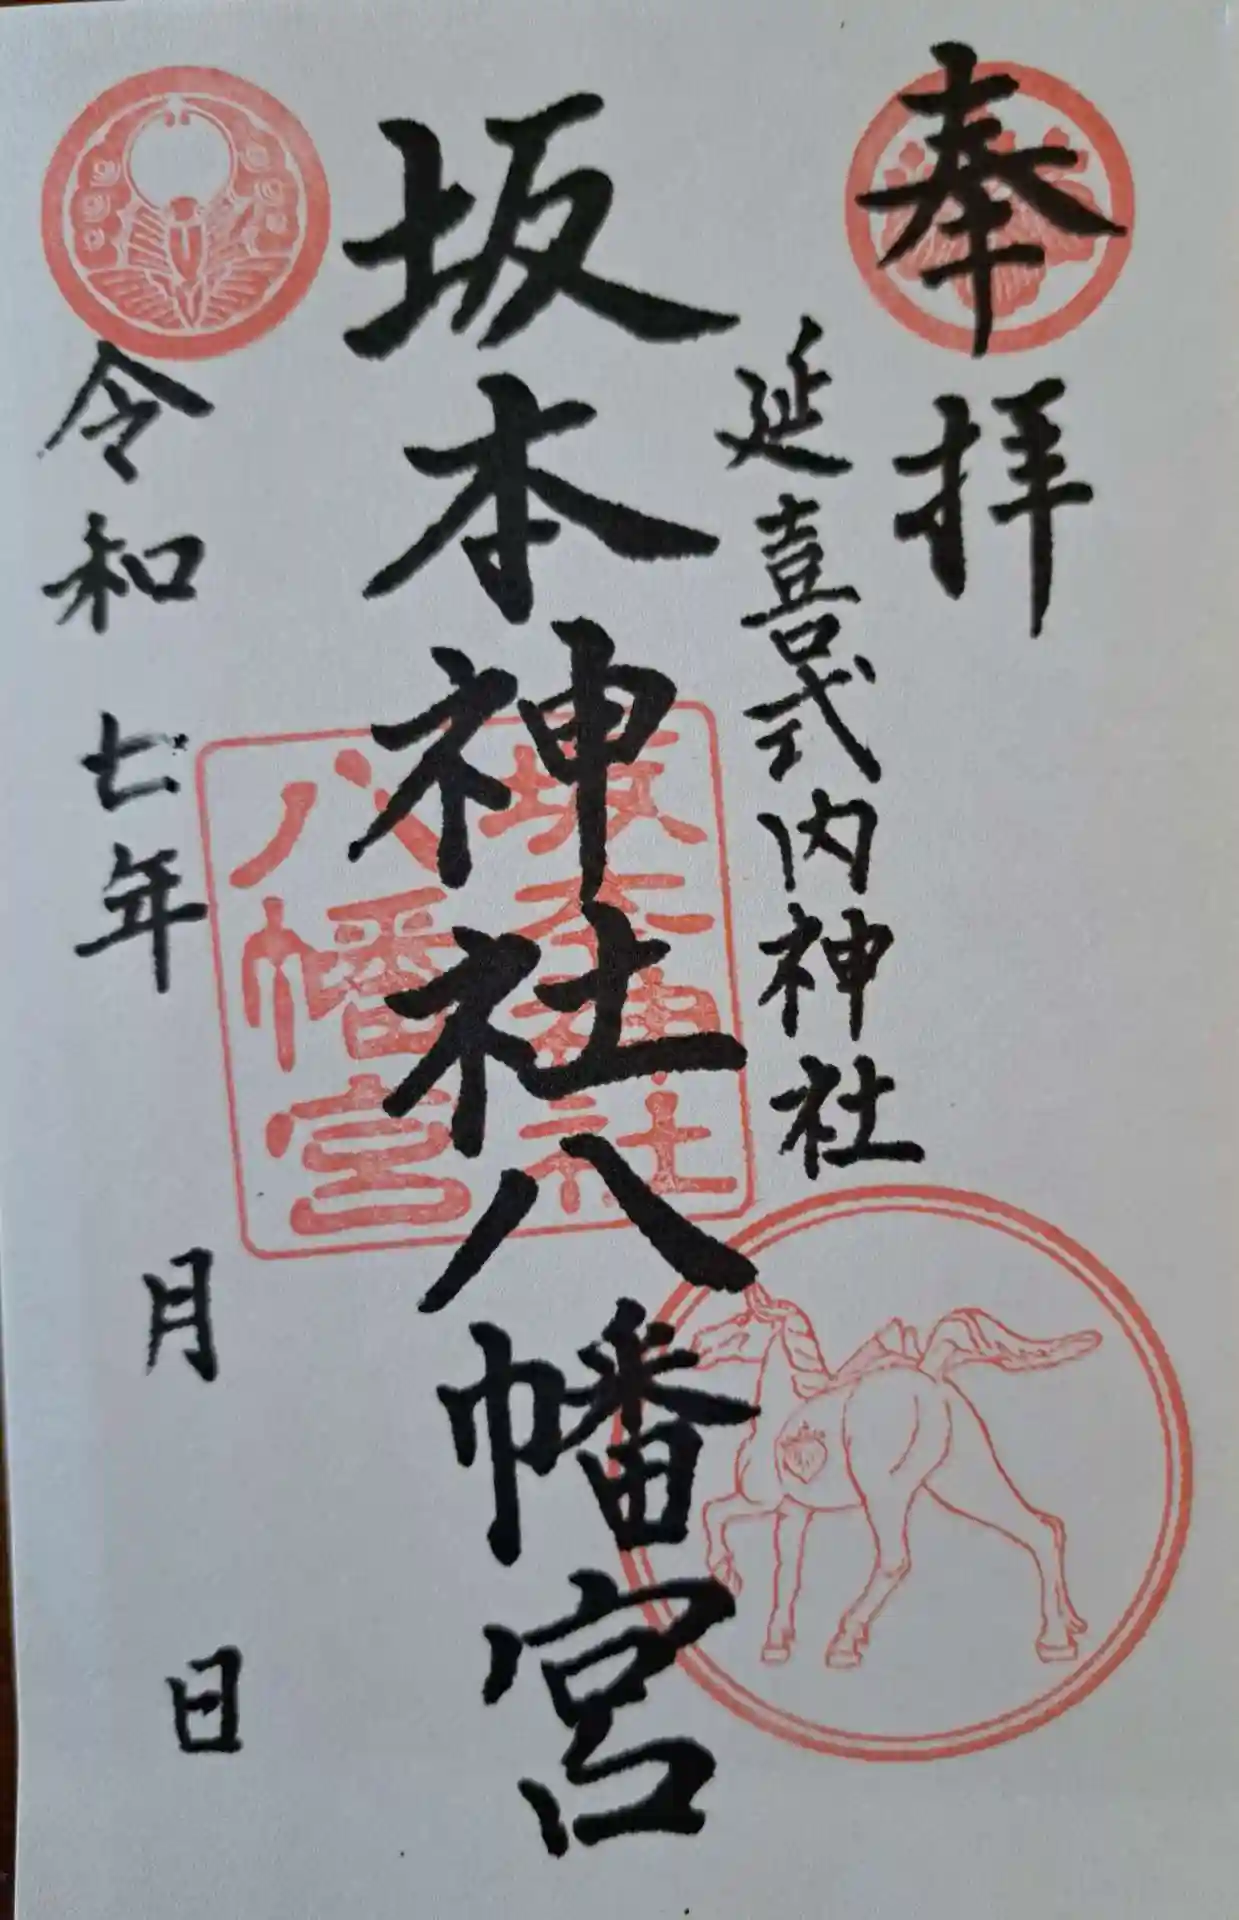 奉拝
延喜式内神社
坂本神社八幡宮
坂本神社
八幡宮
令和七年 月 日